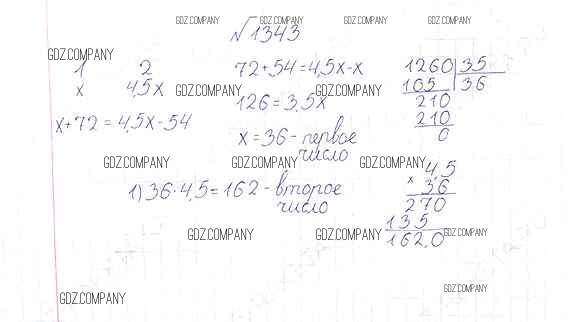 GDZ.COMPANY GDZ.COMPANY GDZ.COMPANY GDZ.COMPANY
√1343
GDZ.COMPANY
1 2
72+54=4,5x-x
1260 | 35
x 4,5x
GDZ.COMPANY GDZ.COMPANY
105 36
126=3,5x
210
x+72=4,5x-54
210
x=36-первое
число
0
GDZ.COMPANY GDZ.COMPANY GDZ.COMPANY
1) 36·4,5=162-второе
число
4,5
x 36
270
135
162,0
GDZ.COMPANY GDZ.COMPANY GDZ.COMPANY
GDZ.COMPANY GDZ.COMPANY